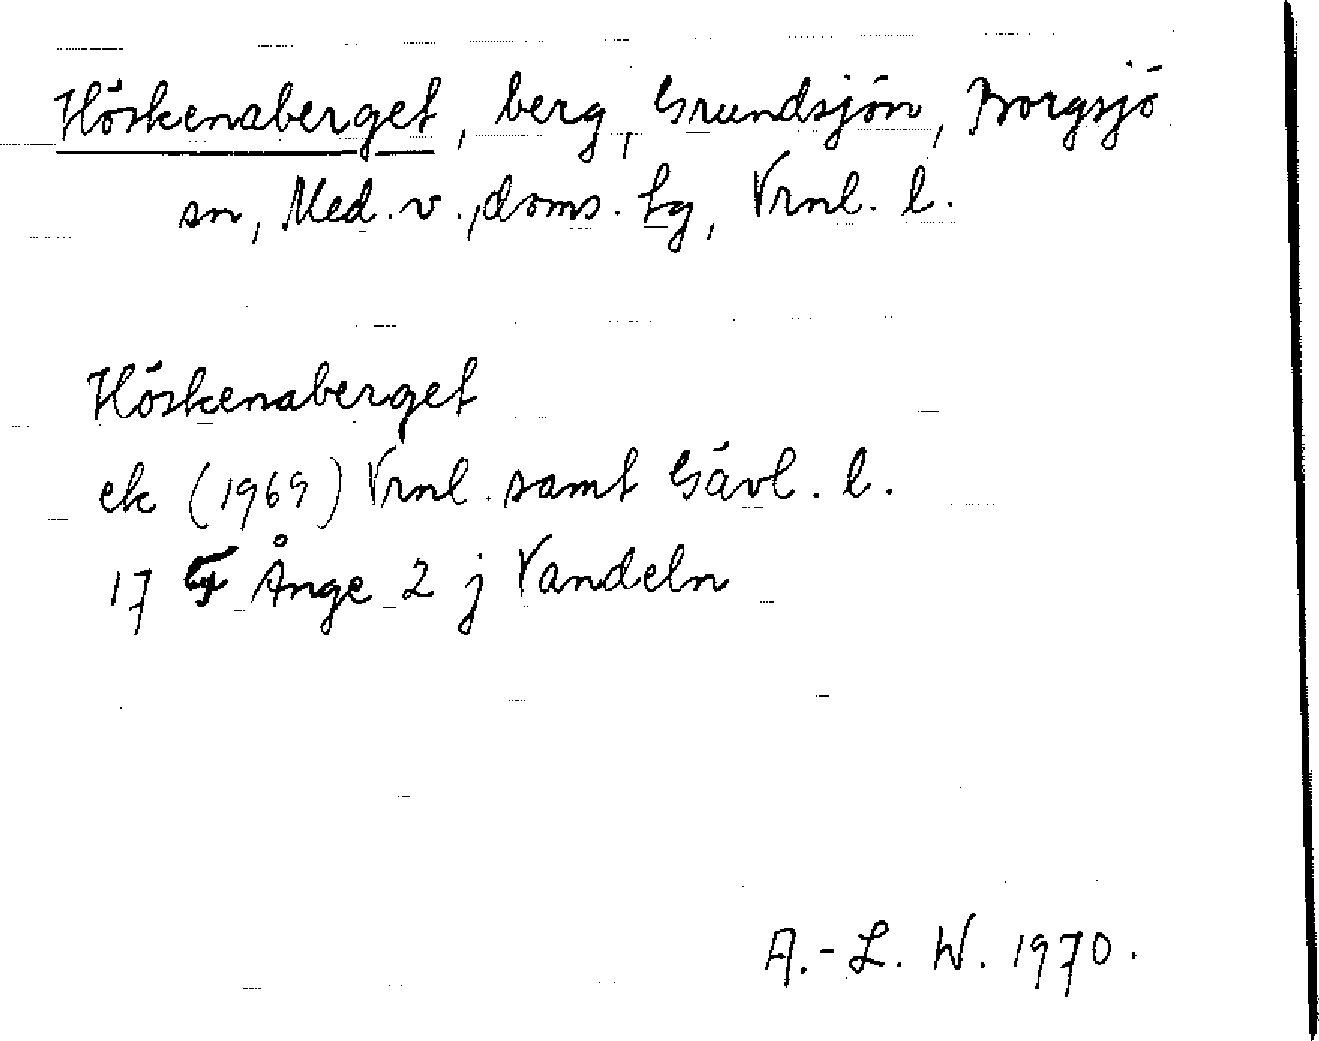 Höskenaberget, berg, Grundsjön, Borgsjö
sn, Med. v., doms. tg, Vrnl. l.
Höskenaberget
ek (1969) Vrnl. samt Gävl. l.
17 F Ånge 2 j Vandeln
A.-L. W. 1970.